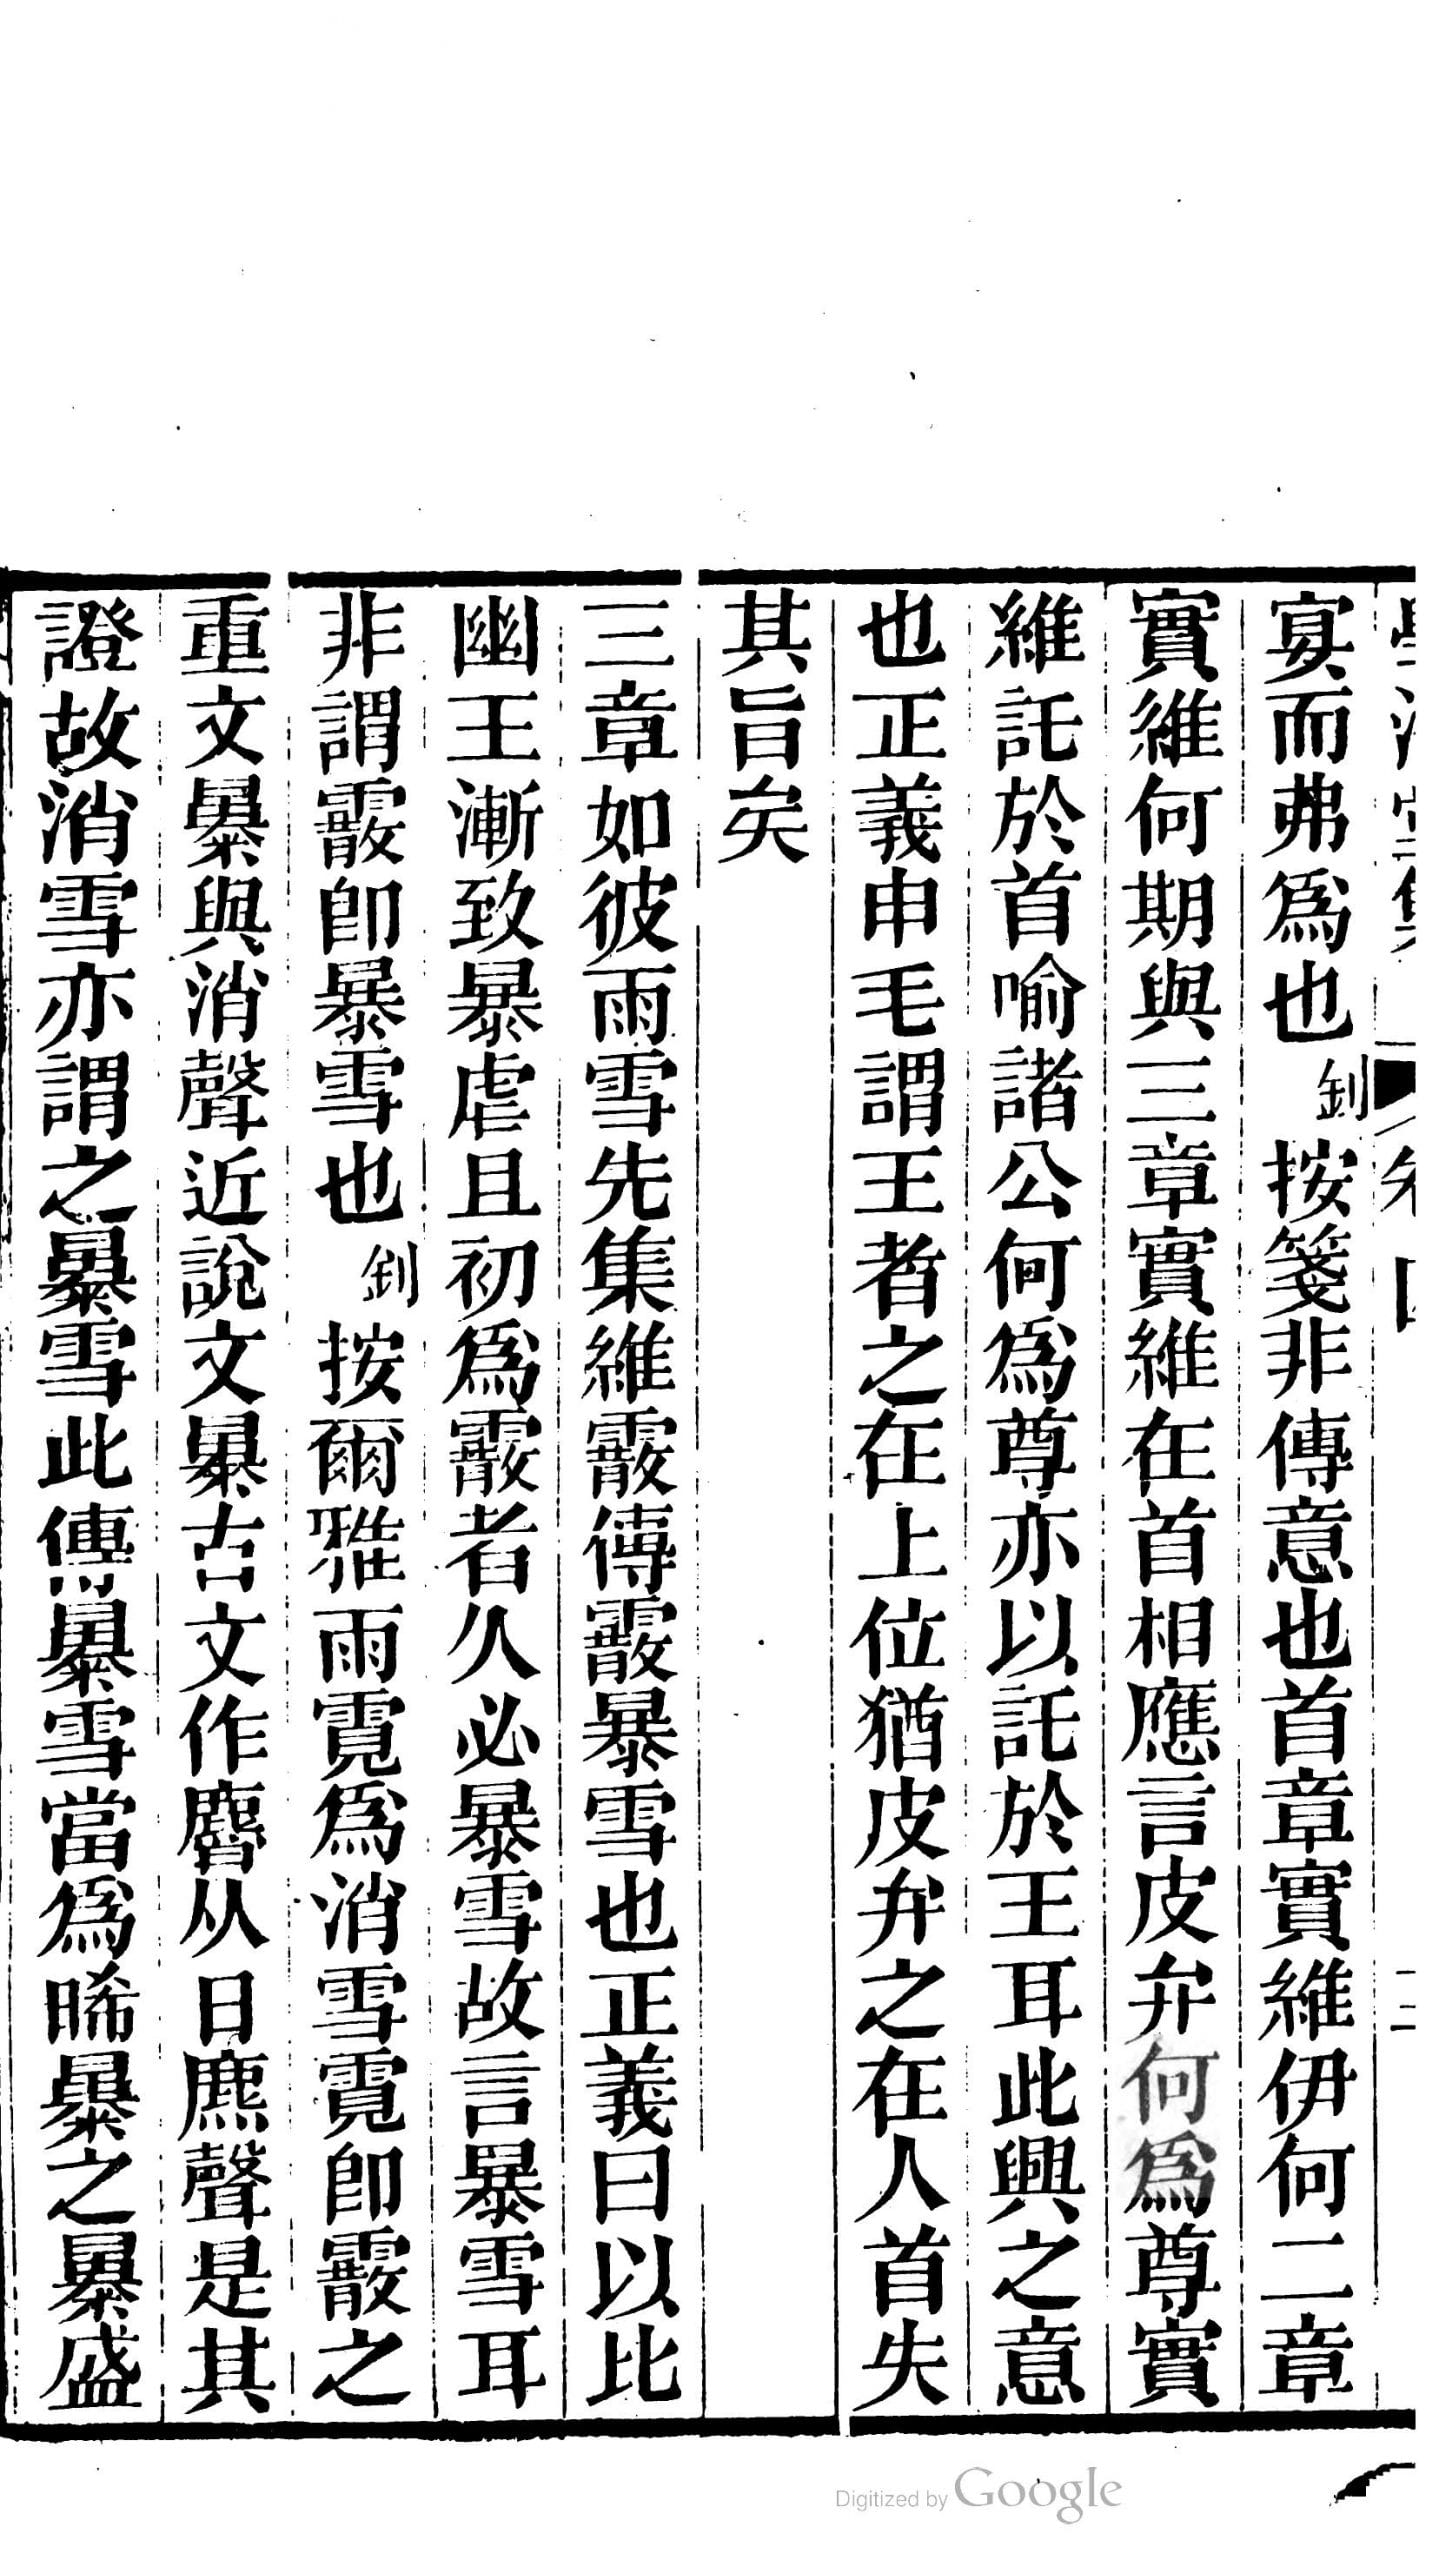 宴而弗爲也釗按箋非傳意也首章實維伊何二章
實維何期與三章實維在首相應言皮弁何爲尊實
維託於首喻諸公何爲尊亦以託於王耳此興之意
也正義申毛謂王者之在上位猶皮弁之在人首失
其旨矣
三章如彼雨雪先集維霰傳霰暴雪也正義曰以比
幽王漸致暴虐且初爲霰者久必暴雪故言暴雪耳
非謂霰卽暴雪也釗按爾雅雨霓爲消雪霓卽霰之
重文㬥與消聲近說文㬥古文作麿从日麃聲是其
證故消雪亦謂之㬥雪此傳㬥雪當爲晞㬥之㬥盛
Digitized by Google